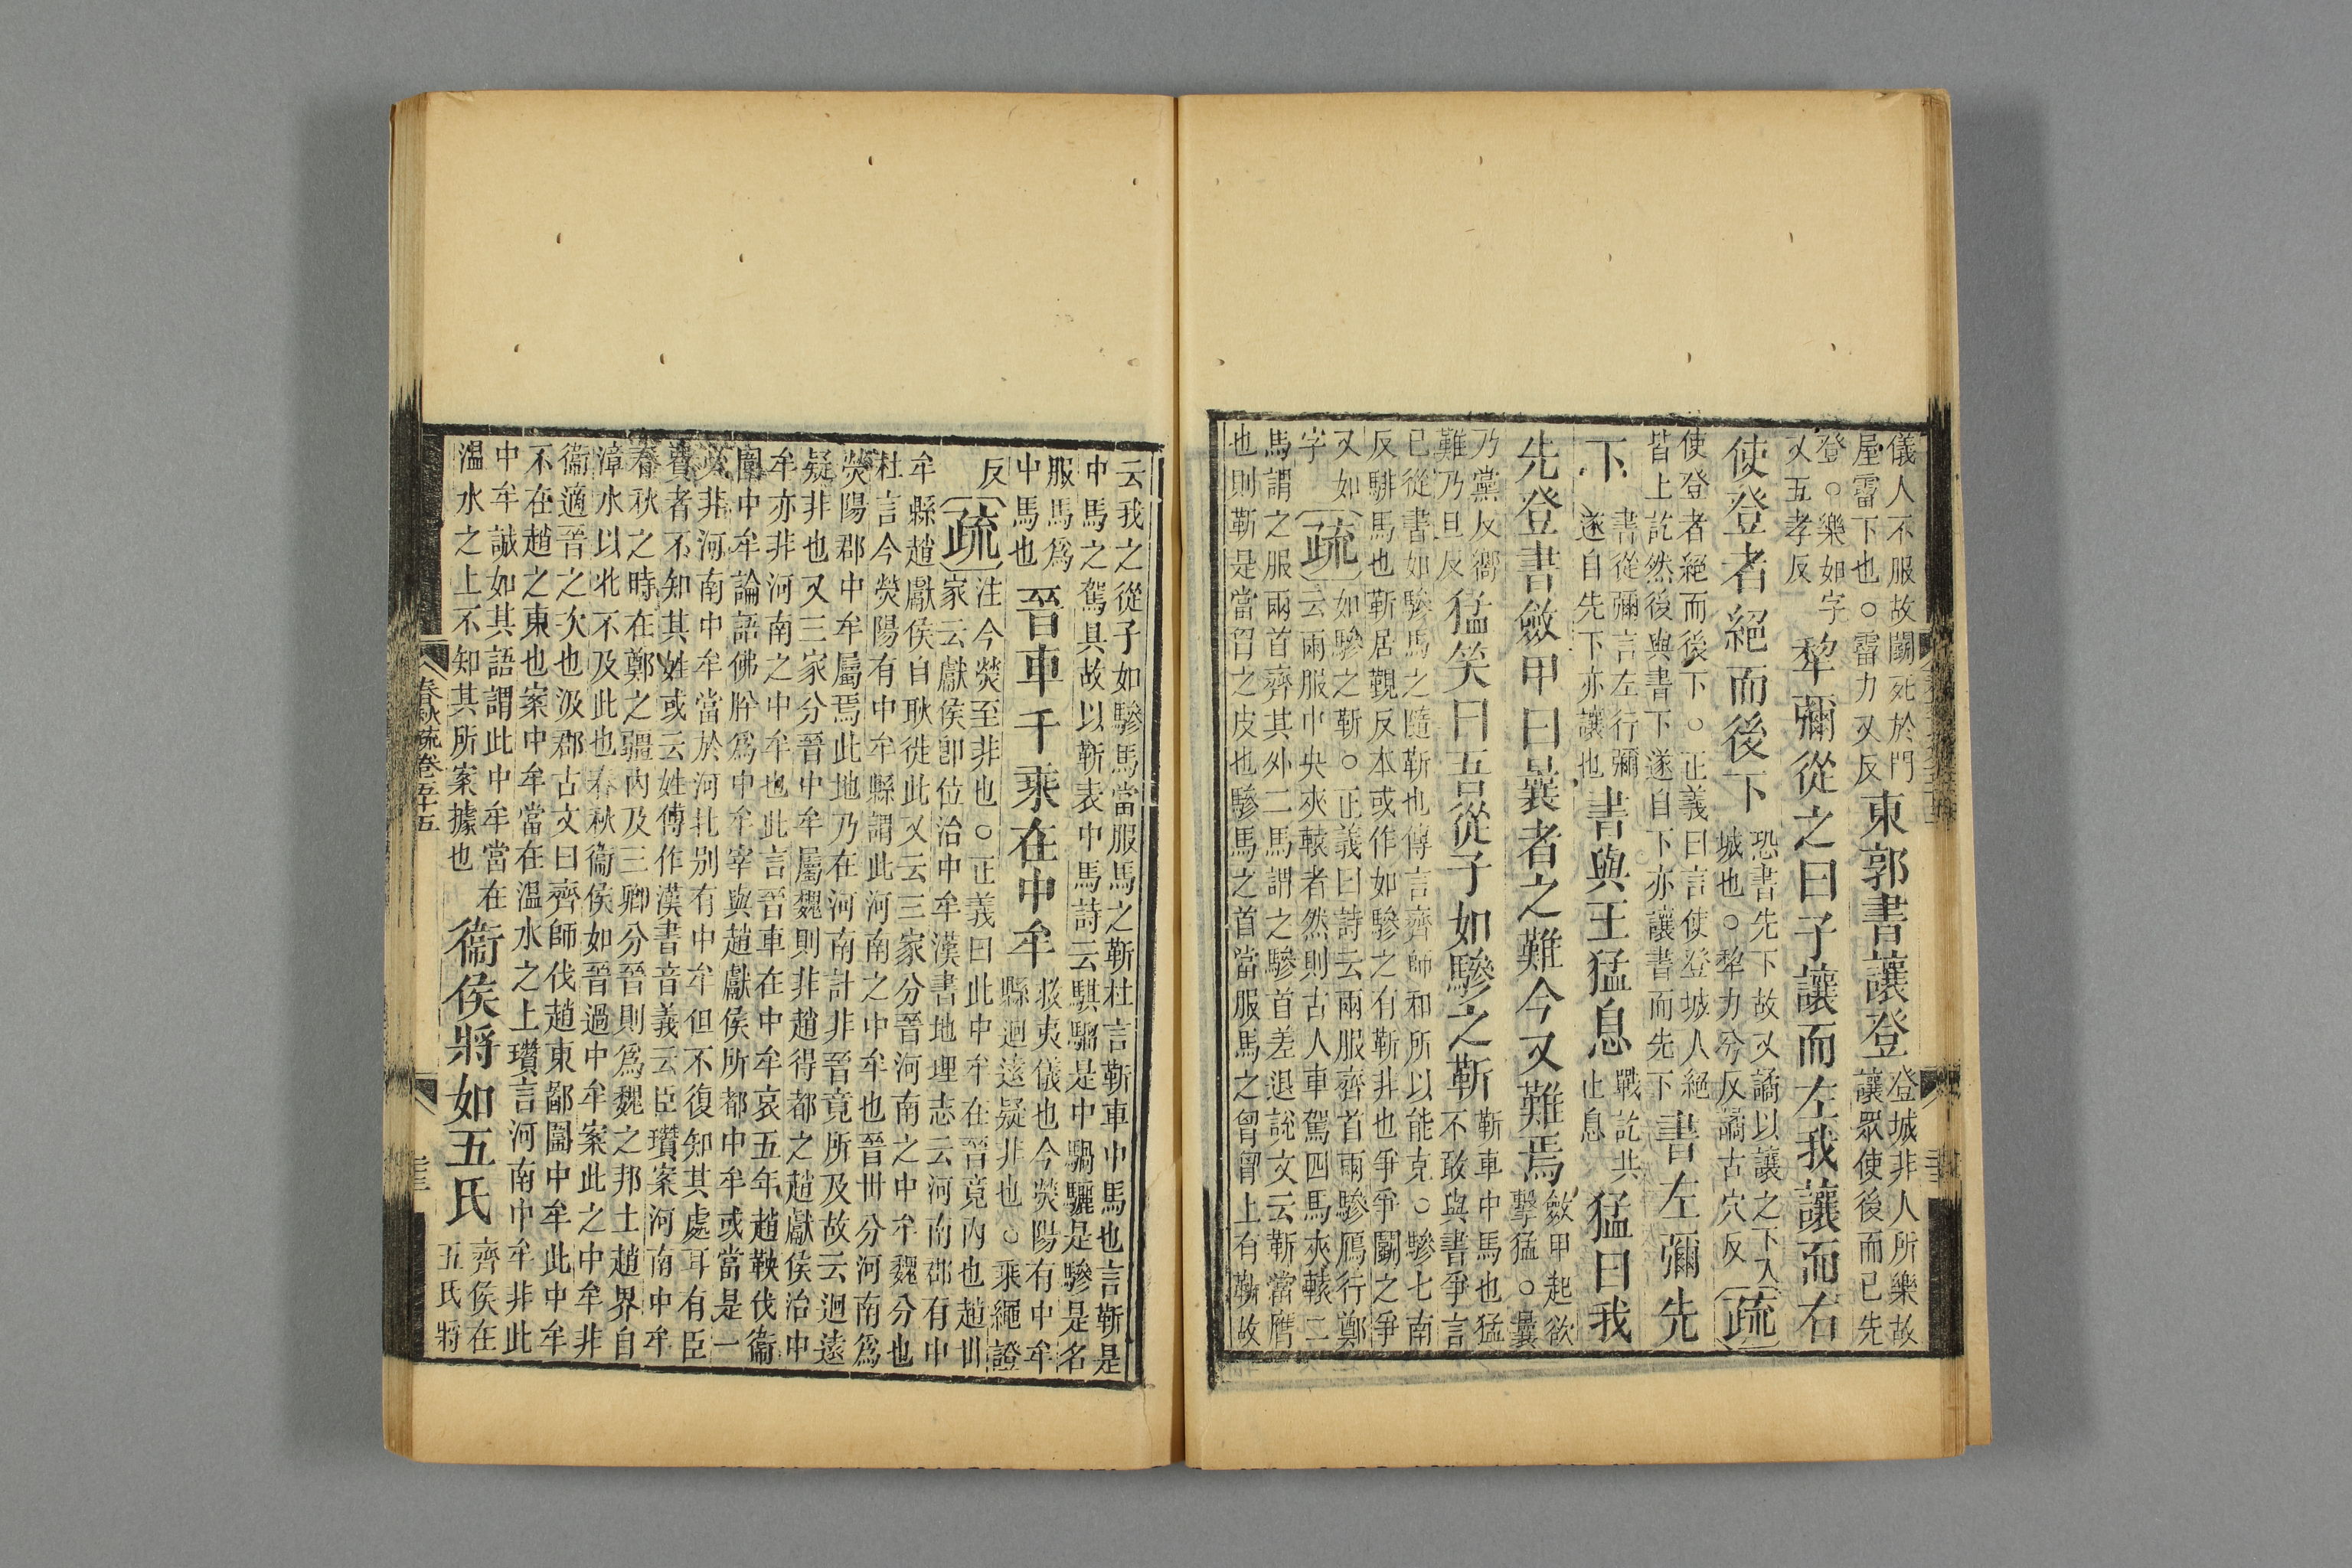 儀人不服故鬬死於門
屋霤下也○霤力又反
東郭書讓登
登城非人所樂故
讓眾使後而已先
登○樂如字
又五孝反
犂彌從之曰子讓而左我讓而右
使登者絕而後下
恐書先下故又譎以讓之下入
城也○犂力兮反譎古穴反
疏
使登者絕而後下○正義曰言使登城人絕
皆上訖然後與書下遂自下亦讓書而先下
書左彌先
下
書從彌言左行彌
遂自先下亦讓也
書與王猛息
戰訖共
止息
猛曰我
先登書斂甲曰曩者之難今又難焉
斂甲起欲
擊猛○曩
乃黨反嚮
難乃旦反
猛笑曰吾從子如驂之靳
靳車中馬也猛
不敢與書爭言
已從書如驂馬之隨靳也傳言齊師和所以能克○驂七南
反騑馬也靳居覲反本或作如驂之有靳非也爭爭鬬之爭
又如
字
疏
如驂之靳○正義曰詩云兩服齊首兩驂鴈行鄭
云兩服中央夾轅者然則古人車駕四馬夾轅二
馬謂之服兩首齊其外二馬謂之驂首差退說文云靳當膺
也則靳是當胷之皮也驂馬之首當服馬之胷胷上有靳故
云我之從子如驂馬當服馬之靳杜言靳車中馬也言靳是
中馬之駕具故以靳表中馬詩云騏騮是中騧驪是驂是名
服馬爲
中馬也
晉車千乘在中牟
救夷儀也今熒陽有中牟
縣迴遠疑非也○乘繩證
反
疏
注今熒至非也○正義曰此中牟在晉竟內也趙世
家云獻侯卽位治中牟漢書地理志云河南郡有中
牟縣趙獻侯自耿徙此又云三家分晉河南之中牟魏分也
杜言今熒陽有中牟縣謂此河南之中牟也晉世分河南爲
熒陽郡中牟屬焉此地乃在河南計非晉竟所及故云迴遠
疑非也又三家分晉中牟屬魏則非趙得都之趙獻侯治中
牟亦非河南之中牟也此言晉車在中牟哀五年趙鞅伐衞
圍中牟論語佛肸爲中牟宰與趙獻侯所都中牟或當是一
必非河南中牟當於河北別有中牟但不復知其處耳有臣
瓚者不知其姓或云姓傅作漢書音義云臣瓚案河南中牟
春秋之時在鄭之疆內及三卿分晉則爲魏之邦土趙界自
漳水以北不及此也春秋衞侯如晉過中牟案此之中牟非
衞適晉之次也汲郡古文曰齊師伐趙東鄙圍中牟此中牟
不在趙之東也案中牟當在温水之上瓚言河南中牟非此
中牟誠如其語謂此中牟當在
温水之上不知其所案據也
衞侯將如五氏
齊侯在
五氏將
春秋疏卷五十五